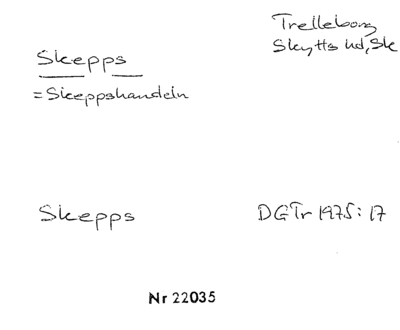 Trelleborg
Skytts hd, Sk
Skepps
= Skeppshandeln
Skepps
DGTr 1975:17
Nr 22035